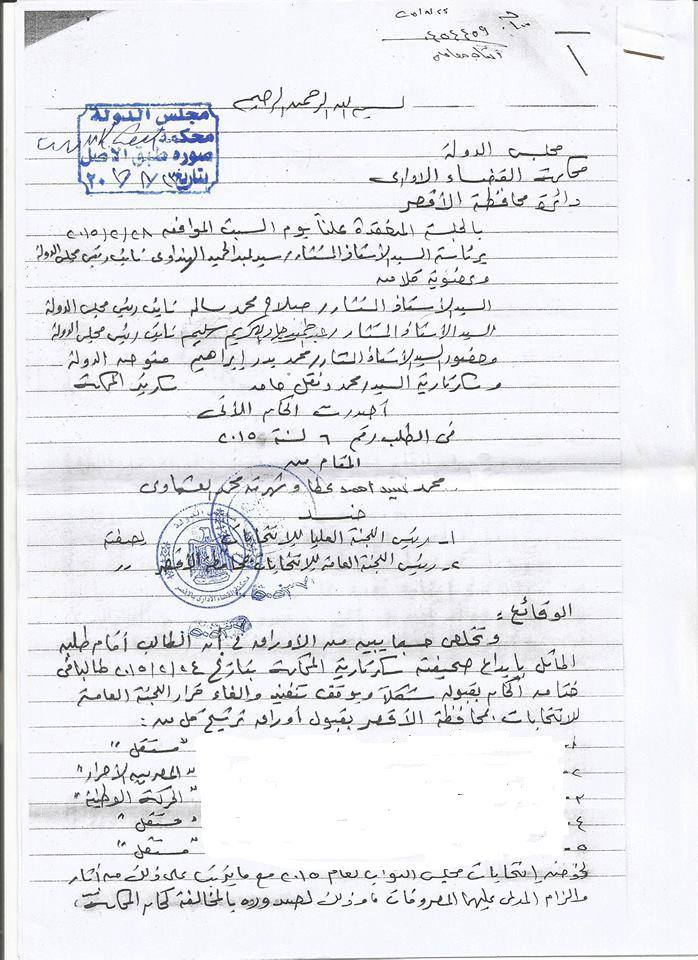 بسم الله الرحمن الرحيم
مجلس الدولة
محكمة
صورة طبق الأصل
بتاريخ
مجلس الدولة
محكمة القضاء الادارى
دائرة محافظة الأقصر
بالجلسة المنعقدة علناً يوم السبت الموافق ٢٠١٥/٢/٢٨
برئاسة السيد الأستاذ المستشار / سيد عبد الحميد الهنداوى نائب رئيس مجلس الدولة
وعضوية كلا من
السيد الأستاذ المستشار / صلاح محمد سالم نائب رئيس مجلس الدولة
السيد الأستاذ المستشار / الكريم سليم نائب رئيس مجلس الدولة
وحضور السيد الأستاذ المستشار / محمد بدر إبراهيم مفوض الدولة
وسكرتارية السيد / محمد دنقل حامد سكرتير المحكمة
أصدرت الحكم الآتى
فى الطلب رقم ٦ لسنة ٢٠١٥
المقام من
محمد سيد احمد عطا وشهرته محمد العشماوى
ضد
١- رئيس اللجنة العليا للانتخابات بصفته
٢- رئيس اللجنة العامة للانتخابات بمحافظة الأقصر ،،
الوقائع :
وتخلص حسبما يبين من الأوراق فى أن الطالب أقام طلبه
الماثل بإيداع صحيفته سكرتارية المحكمة بتاريخ ٢٠١٥/٢/٢٤ طالباً فى
ختامه الحكم بقبوله شكلاً وبوقف تنفيذ والغاء قرار اللجنة العامة
للانتخابات بمحافظة الأقصر بقبول أوراق ترشيح كل من :
١- "مستقل"
٢- "المصريين الأحرار"
٣- "الحركة الوطنية"
٤- "مستقل"
٥- "مستقل"
لخوضه إنتخابات مجلس النواب لعام ٢٠١٥ مع ما يترتب على ذلك من آثار
والزام المدعى عليهما المصروفات ، وذلك لصدوره بالمخالفة لحكم المحكمة